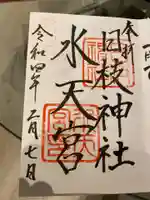 奉拝
日枝神社
水天宮
令和四年二月七日